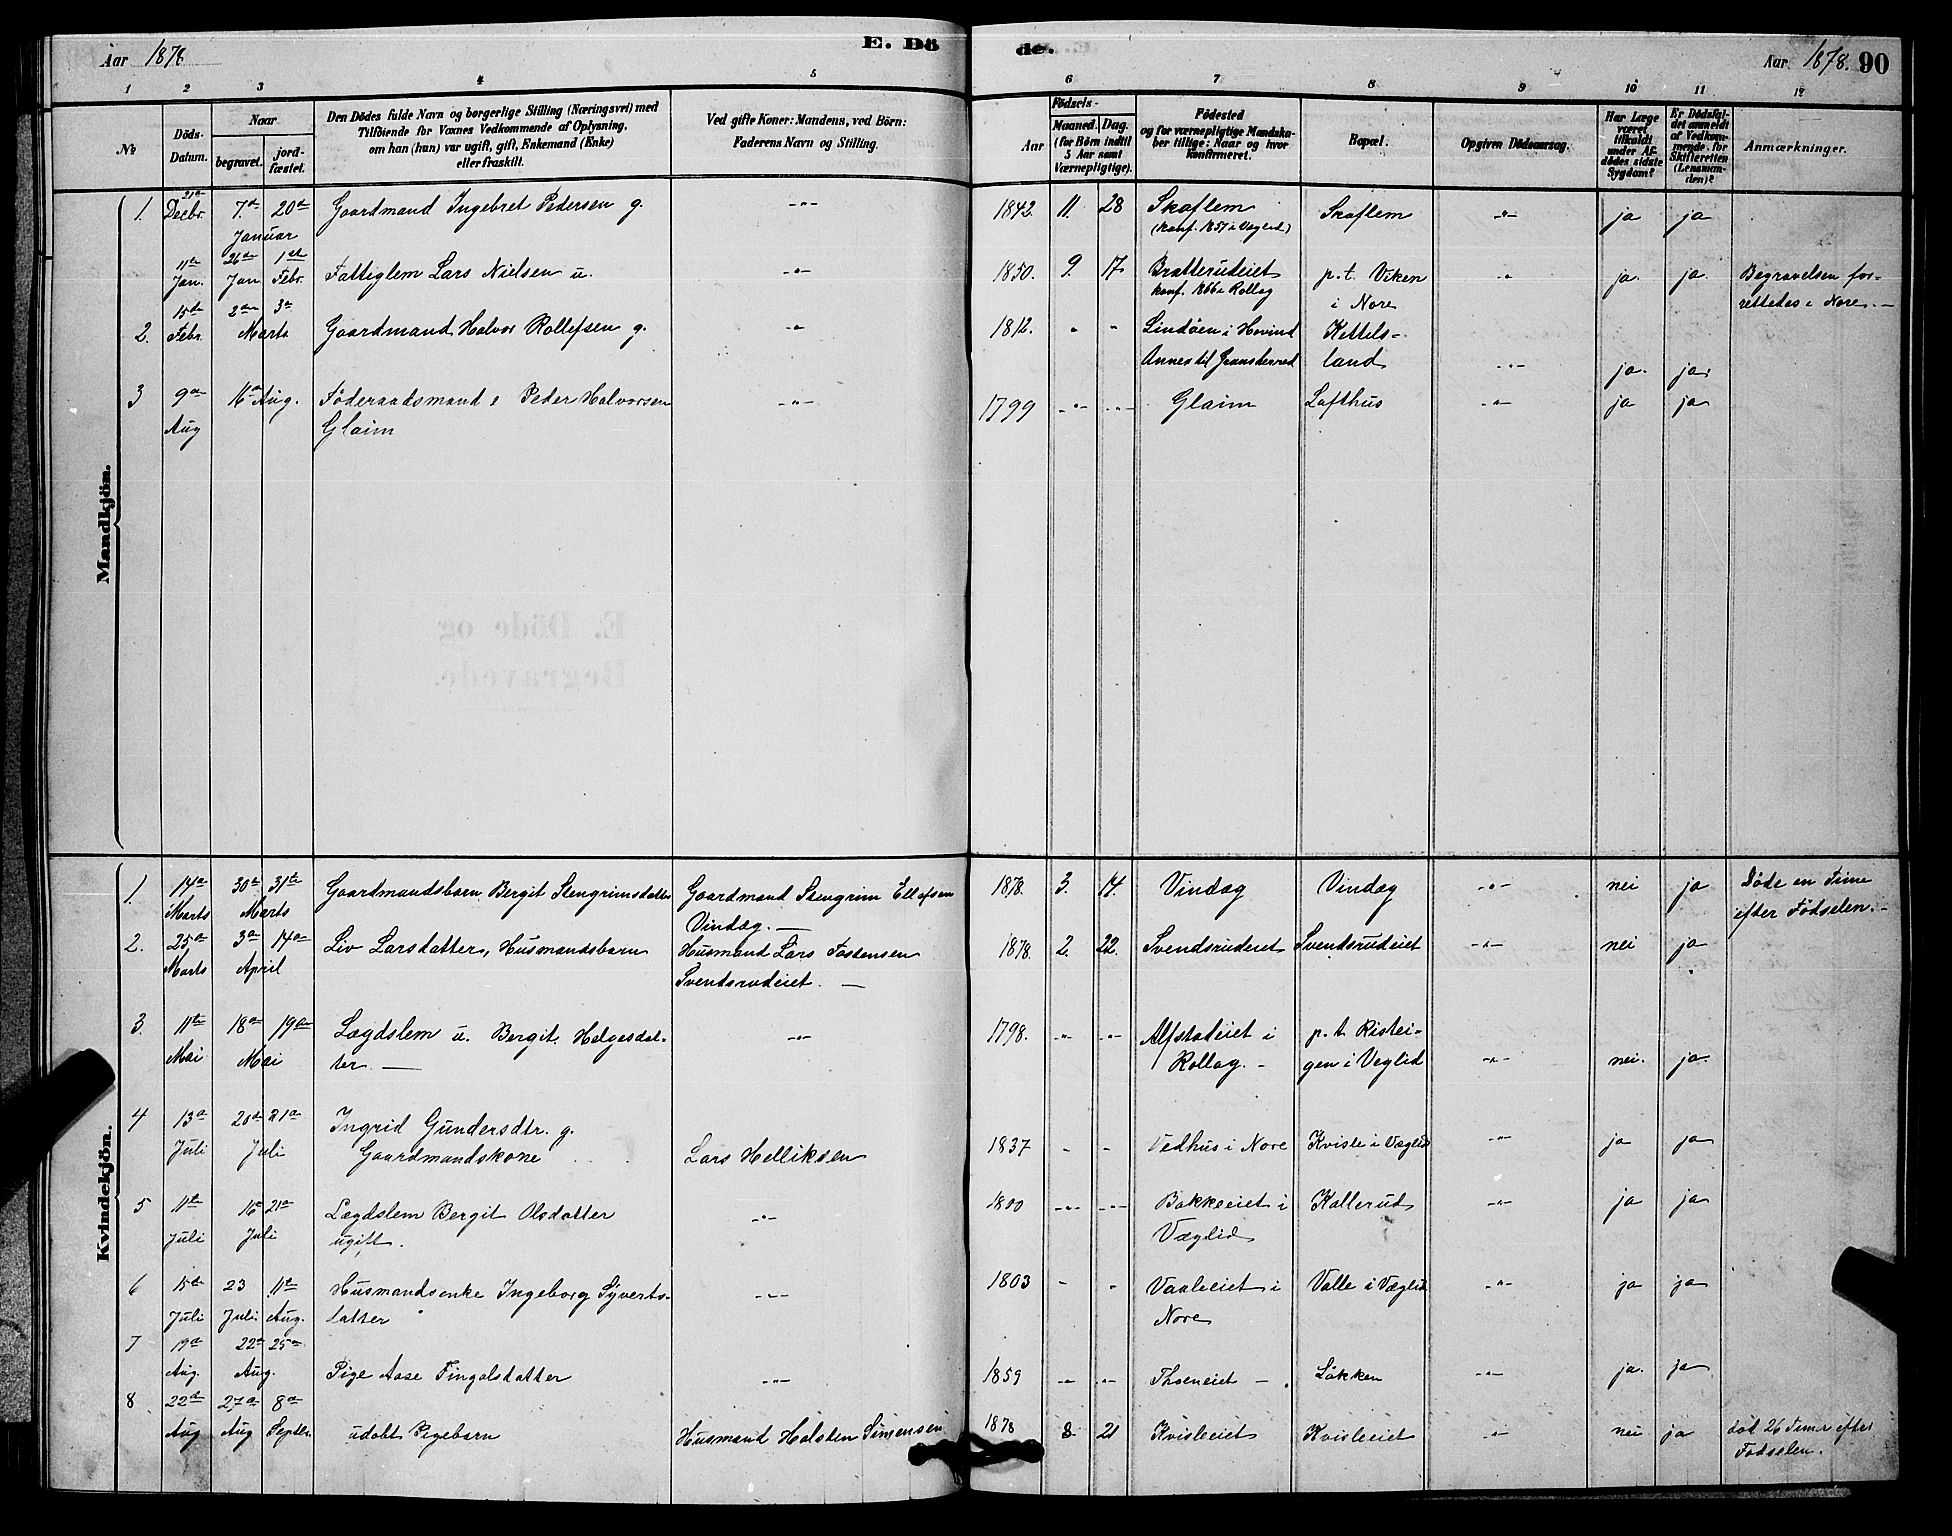 Aar 1878
E. Dö de.
Aar 1878. 90
1 2 3 4 5 6 7 8 9 10 11 12
No
Döds-Datum.
Naar
begravet.
jord-fæstet.
Den Dödes fulde Navn og borgerlige Stilling (Næringsvei) med
Tilföiende for Voxnes Vedkommende af Oplysning,
om han (hun) var ugift, gift, Enkemand (Enke)
eller fraskilt.
Ved gifte Koner: Mandens, ved Börn:
Faderens Navn og Stilling.
Födsels-
Aar
Maaned. Dag.
(for Börn indtil
5 Aar samt
Værnepligtige).
Födested
og for værnepligtige Mandska-
ber tillige: Naar og hvor
konfirmeret.
Bopæl.
Opgiven Dödsaarsag.
Har Læge
været
tilkaldt
under Af-
dödes sidste
Sygdom?
Er Dödsfal-
det anmeldt
af Vedkom-
mende for
Skifteretten
(Lensman-
den)?
Anmærkninger.
Mandkjön.
1. 21de Decbr. 7.de 20de Januar Gaardmand Ingebret Pedersen g. -"- 1842. 11. 28 Skaflem (konf. 1857 i Væglid) Skaflem -"- ja ja
11te Jan. 26de Jan. 1ste Febr. Fattiglem Lars Nielsen u. -"- 1850. 9. 17. Bratterudeiet konf. 1866 i Rollag p. t. Viken i Nore " ja. ja. Begravelsen for-
rettedes i Nore. —
2. 15de Febr. 2den 3de Marts Gaardmand Halvor Rollefsen g. -"- 1812. " " Lindöen i Hovind Annex til Gransherred Kettels-
land -"- ja. ja.
3 9de Aug 16de Aug. Föderaadsmand Peder Halvorsen
Glaim -"- 1799 -"- -"- Glaim Lofthus -"- ja ja
Kvindekjön.
1. 14de Marts 30te 31te Marts Gaardmandsbarn Bergit Stengrimsdatter Gaardmand Stengrim Ellefsen
Vindæg. — 1878. 3. 14. Vindæg Vindæg -"- nei ja Döde en Time
efter Födselen. -
2. 25de Marts 3de 14de April Liv Larsdatter, Husmandsbarn Husmand Lars Fostensen
Svendsrudeiet. — 1878. 2. 22. Svendsrudeiet Svendsrudeiet -"- nei ja
3. 11te Mai 18de 19de Mai Lægdslem u. Bergit Helgesdat-
ter. — -"- 1798. -"- -"- Alfstadeiet i
Rollag. - p. t. Ristei-
gen i Veglid -"- nei. ja.
4 13de Juli 20de 21de Juli Ingrid Gundersdtr. g.
Gaardmandskone Lars Helliksen 1837 - - Vedhus i Nore Kvisle i Væglid -"- ja ja
5 11te Juli 16 21de Juli Lægdslem Bergit Olsdatter
ugift. -"- 1800 -"- -"- Bakkeeiet i
Væglid Kallerud -"- ja ja
6 15de Juli 23 Juli 11te Aug. Husmandsenke Ingeborg Syverts-
datter -"- 1803 - " Vaaleeiet i
Nore Valle i Væglid -"- ja ja
7 19de Aug. 22de 25de Aug. Pige Aase Fingalsdatter -"- 1859 -"- -"- Thoeneiet - Løkken -"- ja. ja
8 22de Aug 27de Aug 8de Septer. udøbt Pigebarn Husmand Halsten Simensen 1878 8 21 Kvisleeiet Kvisleeiet -"- nei ja död 26 Timer efter
Fødselen.